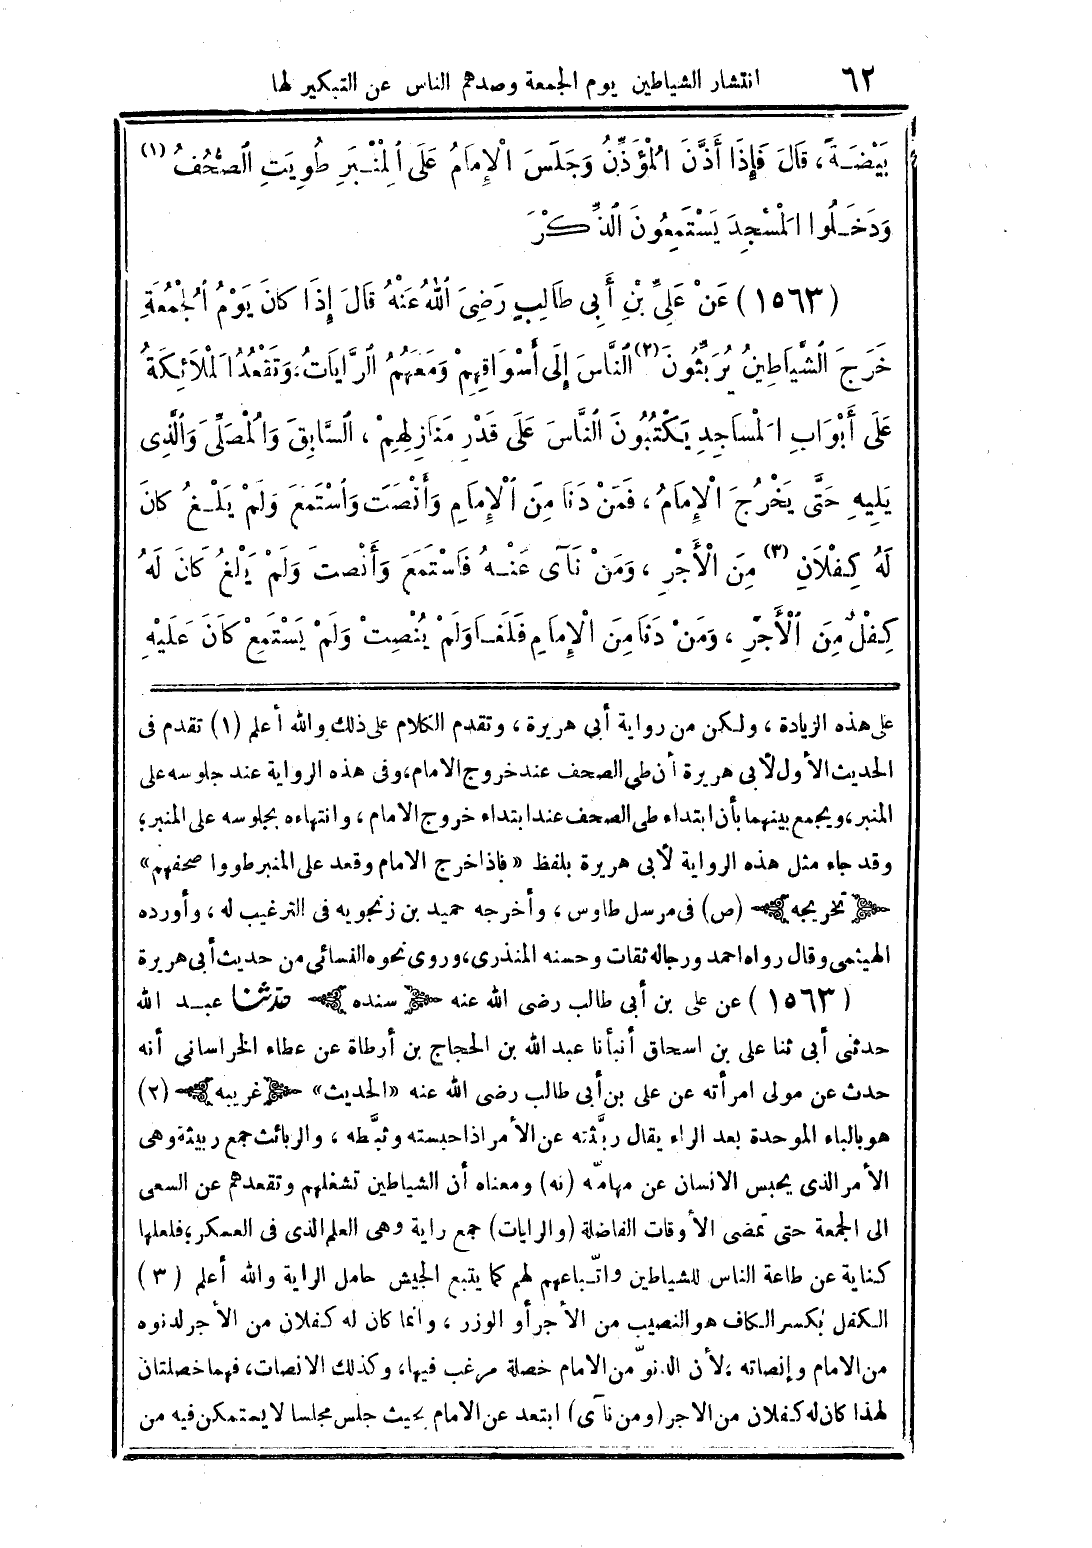 ٦٢ انتشار الشياطين يوم الجمعة وصدهم الناس عن التبكير لها
بَيْضَةً، قَالَ فَإِذَا أَذَّنَ الْمُؤَذِّنُ وَجَلَسَ الْإِمَامُ عَلَى الْمِنْبَرِ طُوِيَتِ الصُّحُفُ (١)
وَدَخَلُوا الْمَسْجِدَ يَسْتَمِعُونَ الذِّكْرَ
(١٥٦٣) عَنْ عَلِيِّ بْنِ أَبِى طَالِبٍ رَضِىَ اللهُ عَنْهُ قَالَ إِذَا كَانَ يَوْمُ الْجُمُعَةِ
خَرَجَ الشَّيَاطِينُ يُرَبِّثُونَ (٢) النَّاسَ إِلَى أَسْوَاقِهِمْ وَمَعَهُمُ الرَّايَاتُ، وَتَقْعُدُ الْمَلَائِكَةُ
عَلَى أَبْوَابِ الْمَسَاجِدِ يَكْتُبُونَ النَّاسَ عَلَى قَدْرِ مَنَازِلِهِمْ، السَّابِقَ وَالْمُصَلِّىَ وَالَّذِى
يَلِيهِ حَتَّى يَخْرُجَ الْإِمَامُ، فَمَنْ دَنَا مِنَ الْإِمَامِ وَأَنْصَتَ وَاسْتَمَعَ وَلَمْ يَلْغُ كَانَ
لَهُ كِفْلَانِ (٣) مِنَ الْأَجْرِ، وَمَنْ نَآى عَنْهُ فَاسْتَمَعَ وَأَنْصَتَ وَلَمْ يَلْغُ كَانَ لَهُ
كِفْلٌ مِنَ الْأَجْرِ، وَمَنْ دَنَا مِنَ الْإِمَامِ فَلَغَا وَلَمْ يُنْصِتْ وَلَمْ يَسْتَمِعْ كَانَ عَلَيْهِ
على هذه الزيادة، ولكن من رواية أبي هريرة، وتقدم الكلام على ذلك والله أعلم (١) تقدم فى
الحديث الأول لأبى هريرة أن طي الصحف عند خروج الامام، وفى هذه الرواية عند جلوسه على
المنبر، ويجمع بينهما بأن ابتداء طى الصحف عند ابتداء خروج الامام، وانتهاءه بجلوسه على المنبر؛
وقد جاء مثل هذه الرواية لأبى هريرة بلفظ «فاذا خرج الامام وقعد على المنبر طووا صحفهم»
تخريجه (ص) فى مرسل طاوس، وأخرجه حميد بن زنجويه فى الترغيب له، وأورده
الهيثمى وقال رواه احمد ورجاله ثقات وحسنه المنذرى، وروى نحوه النسائي من حديث أبى هريرة
(١٥٦٣) عن على بن أبي طالب رضى الله عنه سنده حدثنا عبد الله
حدثنى أبى ثنا على بن اسحاق أنبأنا عبد الله بن الحجاج بن أرطاة عن عطاء الخراسانى أنه
حدث عن مولى امرأته عن على بن أبى طالب رضى الله عنه «الحديث» غريبه (٢)
هو بالباء الموحدة بعد الراء يقال ربَّثته عن الأمر اذا حبسته وثبَّطه، والربائث جمع ربيثة وهى
الأمر الذى يحبس الانسان عن مهامّه (نه) ومعناه أن الشياطين تشغلهم وتقعدهم عن السعى
الى الجمعة حتى تمضى الأوقات الفاضلة (والرايات) جمع راية وهى العلم الذى فى العسكر؛ فلعلها
كناية عن طاعة الناس للشياطين واتّباعهم لهم كما يتبع الجيش حامل الراية والله أعلم (٣)
الكفل بكسر الكاف هو النصيب من الأجر أو الوزر، وانما كان له كفلان من الأجر لدنوه
من الامام وإنصاته؛ لأن الدنوّ من الامام خصلة مرغب فيها، وكذلك الانصات، فهما خصلتان
لهذا كان له كفلان من الاجر (ومن نآى) ابتعد عن الامام بحيث جلس مجلسا لايستمكن فيه من